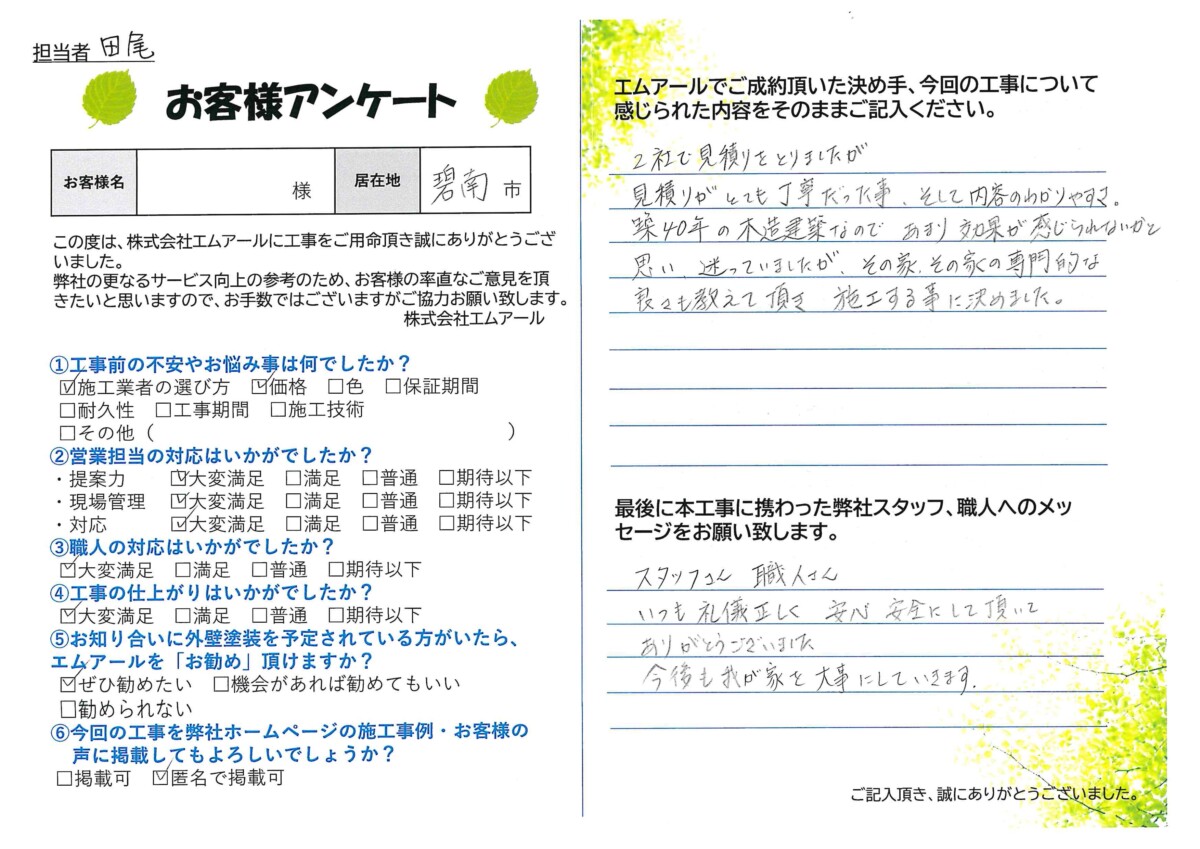 担当者 田尾
お客様アンケート
お客様名 様 居在地 碧南 市
この度は、株式会社エムアールに工事をご用命頂き誠にありがとうござ
いました。
弊社の更なるサービス向上の参考のため、お客様の率直なご意見を頂
きたいと思いますので、お手数ではございますがご協力お願い致します。
株式会社エムアール
①工事前の不安やお悩み事は何でしたか？
☑施工業者の選び方 ☑価格 □色 □保証期間
□耐久性 □工事期間 □施工技術
□その他（ ）
②営業担当の対応はいかがでしたか？
・提案力 ☑大変満足 □満足 □普通 □期待以下
・現場管理 ☑大変満足 □満足 □普通 □期待以下
・対応 ☑大変満足 □満足 □普通 □期待以下
③職人の対応はいかがでしたか？
☑大変満足 □満足 □普通 □期待以下
④工事の仕上がりはいかがでしたか？
☑大変満足 □満足 □普通 □期待以下
⑤お知り合いに外壁塗装を予定されている方がいたら、
エムアールを「お勧め」頂けますか？
☑ぜひ勧めたい □機会があれば勧めてもいい
□勧められない
⑥今回の工事を弊社ホームページの施工事例・お客様の
声に掲載してもよろしいでしょうか？
□掲載可 ☑匿名で掲載可
エムアールでご成約頂いた決め手、今回の工事について
感じられた内容をそのままご記入ください。
2社で見積りをとりましたが
見積りがとても丁寧だった事、そして内容のわかりやすさ。
築40年の木造建築なので あまり効果が感じられないかと
思い、迷っていましたが、その家、その家の専門的な
良さも教えて頂き 施工する事に決めました。
最後に本工事に携わった弊社スタッフ、職人へのメッ
セージをお願い致します。
スタッフさん 職人さん
いつも礼儀正しく 安心 安全にして頂いて
ありがとうございました
今後も我が家を大事にしていきます.
ご記入頂き、誠にありがとうございました。